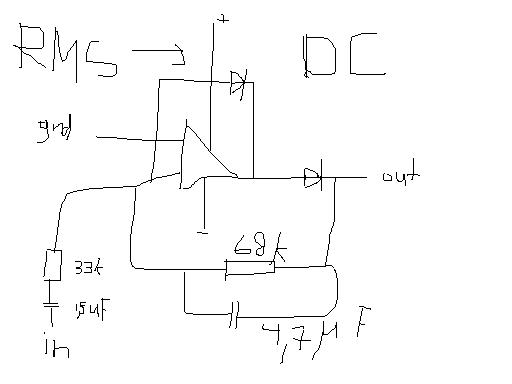 +
RMS → DC
gnd
out
-
68k
33k
1,5uF
4,7µF
in